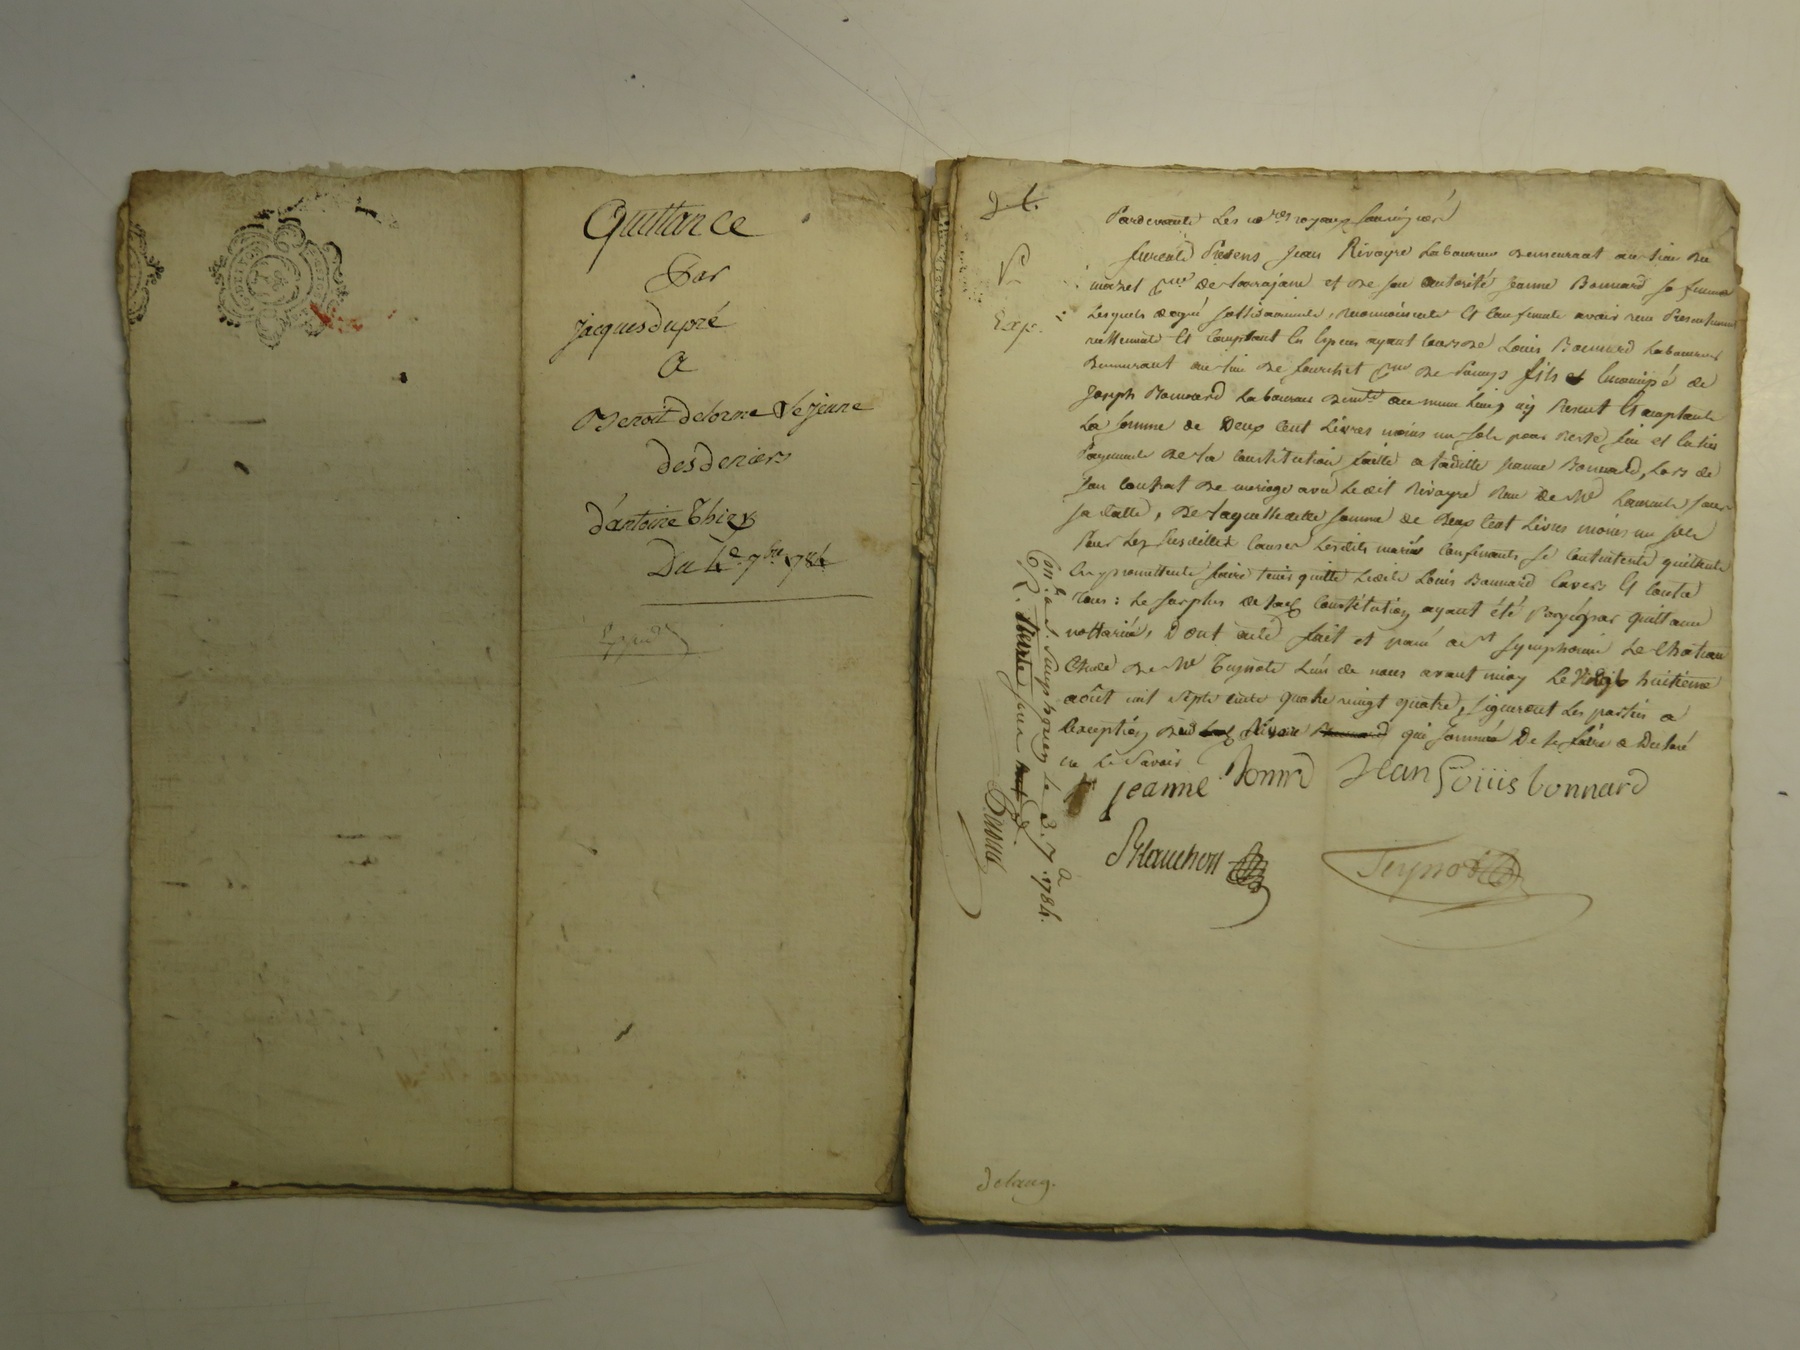 Quittance
Par
jacques dupré
A
Benoit delorme Le jeune
des deniers
d'antoine Thiers
Du 4e 7bre 1784
Expéd
Exp.
Pardevant Les nres royaux soussignés
furent Presens Jean Rivoyre Laboureur demeurant au lieu du
moret psse de Larajasse et de son autorité Jeanne Bonnard sa femme
Lesquels de gré solidairement, reconnoissent Et confessent avoir reçu Presentement
reellement Et comptant en especes ayant cours de Louis Bonnard Laboureur
demeurant au lieu de psse de fils et emancipé de
Joseph Bonnard Laboureur demt au meme lieu icy Present Et acceptant
La somme de Deux cent Livres moins un sols pour reste fin et entier
Payement de la constitution faite a ladite jeanne Bonnard, Lors de
son contrat de mariage avec Ledit Rivoyre Reçu de Me
sa datte, de laquelle ditte somme de Deux cent Livres moins un sols
Pour Les susdittes causes Lesdits mariés confessants se contentent quittent
en promettent faire tenir quitte Ledit Louis Bonnard Envers Et contre
Tous: Le surplus de lad constitution ayant été payé par quittance
nottariée, Dont acte fait et passé a St Symphorien Le Chateau
Etude de Me Teynote L'un de nous avant midy Le vingt huitieme
août mil sept cent quatre vingt quatre, signeront Les parties a
L'exception dud Rivoire qui sommé De le faire a Declaré
ne Le Savoir
jeanne bonnrd Jean Louiis bonnard
Blanchon Teynot
Conlé a St Simphorien le 3. 7bre 1784.
R. trente sous